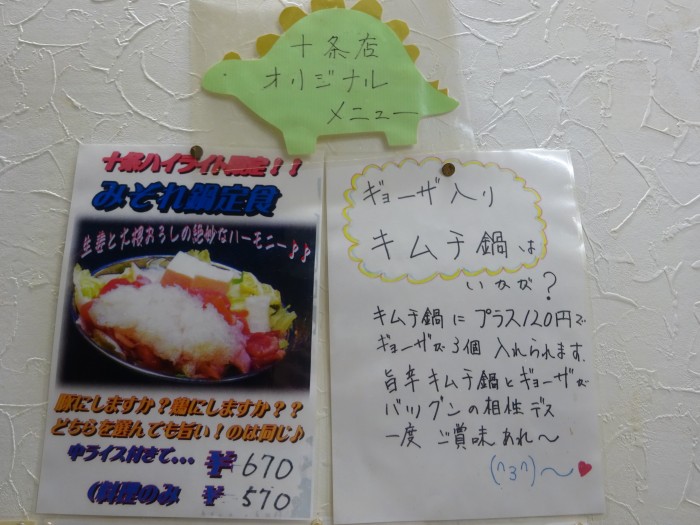 十条店
オリジナル
メニュー
十条ハイライト限定!!
みぞれ鍋定食
生姜と大根おろしの絶妙なハーモニー♪♪
豚にしますか?鶏にしますか??
どちらを選んでも旨い!のは同じ♪
中ライス付きで... ¥670
(料理のみ ¥570
ギョーザ入り
キムチ鍋は
いかが?
キムチ鍋にプラス120円で
ギョーザが3個入れられます。
旨辛キムチ鍋とギョーザが
バツグンの相性デス
一度ご賞味あれ〜
(^3^)〜♥